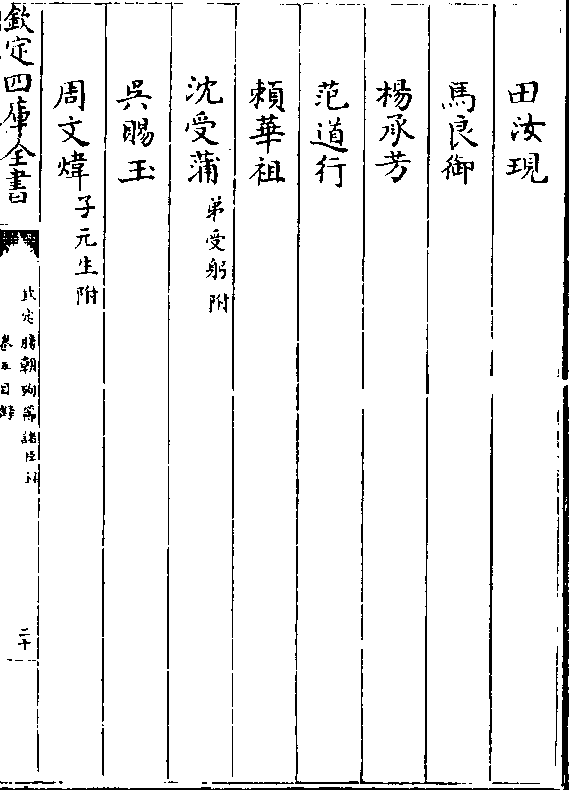 田汝現
馬良御
楊承芳
范道行
賴華祖
沈受蒲弟受躬附
吳賜玉
周文煒子元生附
欽定四庫全書
欽定勝朝殉節諸臣錄
卷五目錄
二十